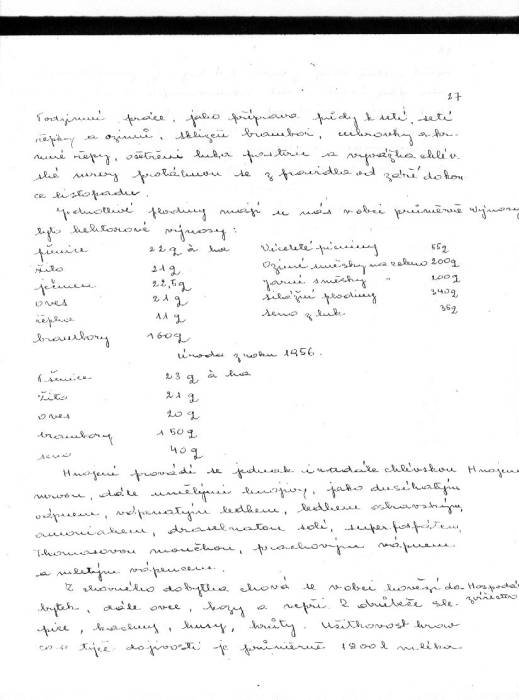 27
Podzimní práce, jako příprava půdy k setí, setí
řepky a ozimů, sklizeň brambor, cukrovky a kr-
mné řepy, ošetření luk a pastvin a vyvážka chlév-
ské mrvy protáhnou se z pravidla od září do kon-
ce listopadu.
Jednotlivé plodiny mají u nás v obci průměrné Výnosy
hektarové výnosy:
pšenice 22q à ha Víceleté pícniny 55q
žito 21q Ozimé směsky na zeleno 200q
ječmen 22,5q jarní směsky " 200q
oves 21q silážní plodiny 340q
řepka 11q seno z luk 35q
brambory 160q
Úroda z roku 1956.
Pšenice 23q à ha
Žito 21q
oves 20q
brambory 150q
seno 40q
Hnojení provádí se jednak chlévskou Hnojení
mrvou, dále umělými hnojivy, jako dusíkatým
vápnem, vápenatým ledkem, ledkem ostravským,
amoniakem, draselnatou solí, superfosfátem,
Thomasovou moučkou, prachovým vápnem
a mletým vápencem.
Z chovného dobytka chová se v obci hovězí do- Hospodář.
bytek, dále ovce, kozy a vepři. Z drůbeže sle- zvířectvo
pice, kachny, husy, krůty. Užitkovost krav
co se týče dojivosti je průměrně 1800 l mléka